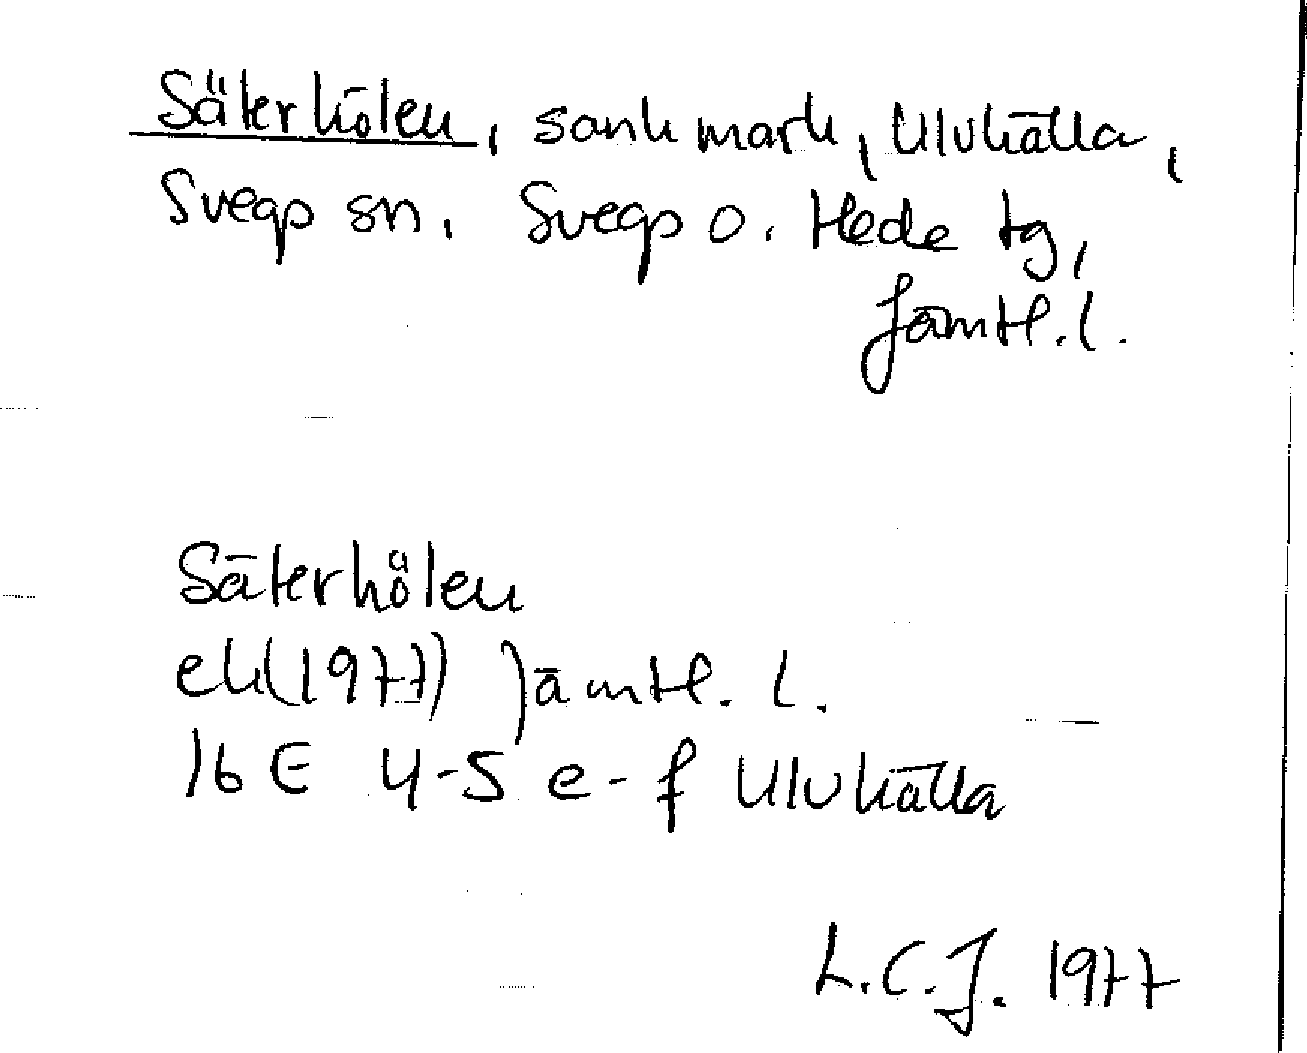 Säterkölen, sank mark, Ulvkälla,
Svegs sn. Svegs o. Hede tg,
Jämtl. l.
Säterkölen
ek(1977) Jämtl. l.
16 E 4-5 e-f Ulvkälla
L.C.J. 1977